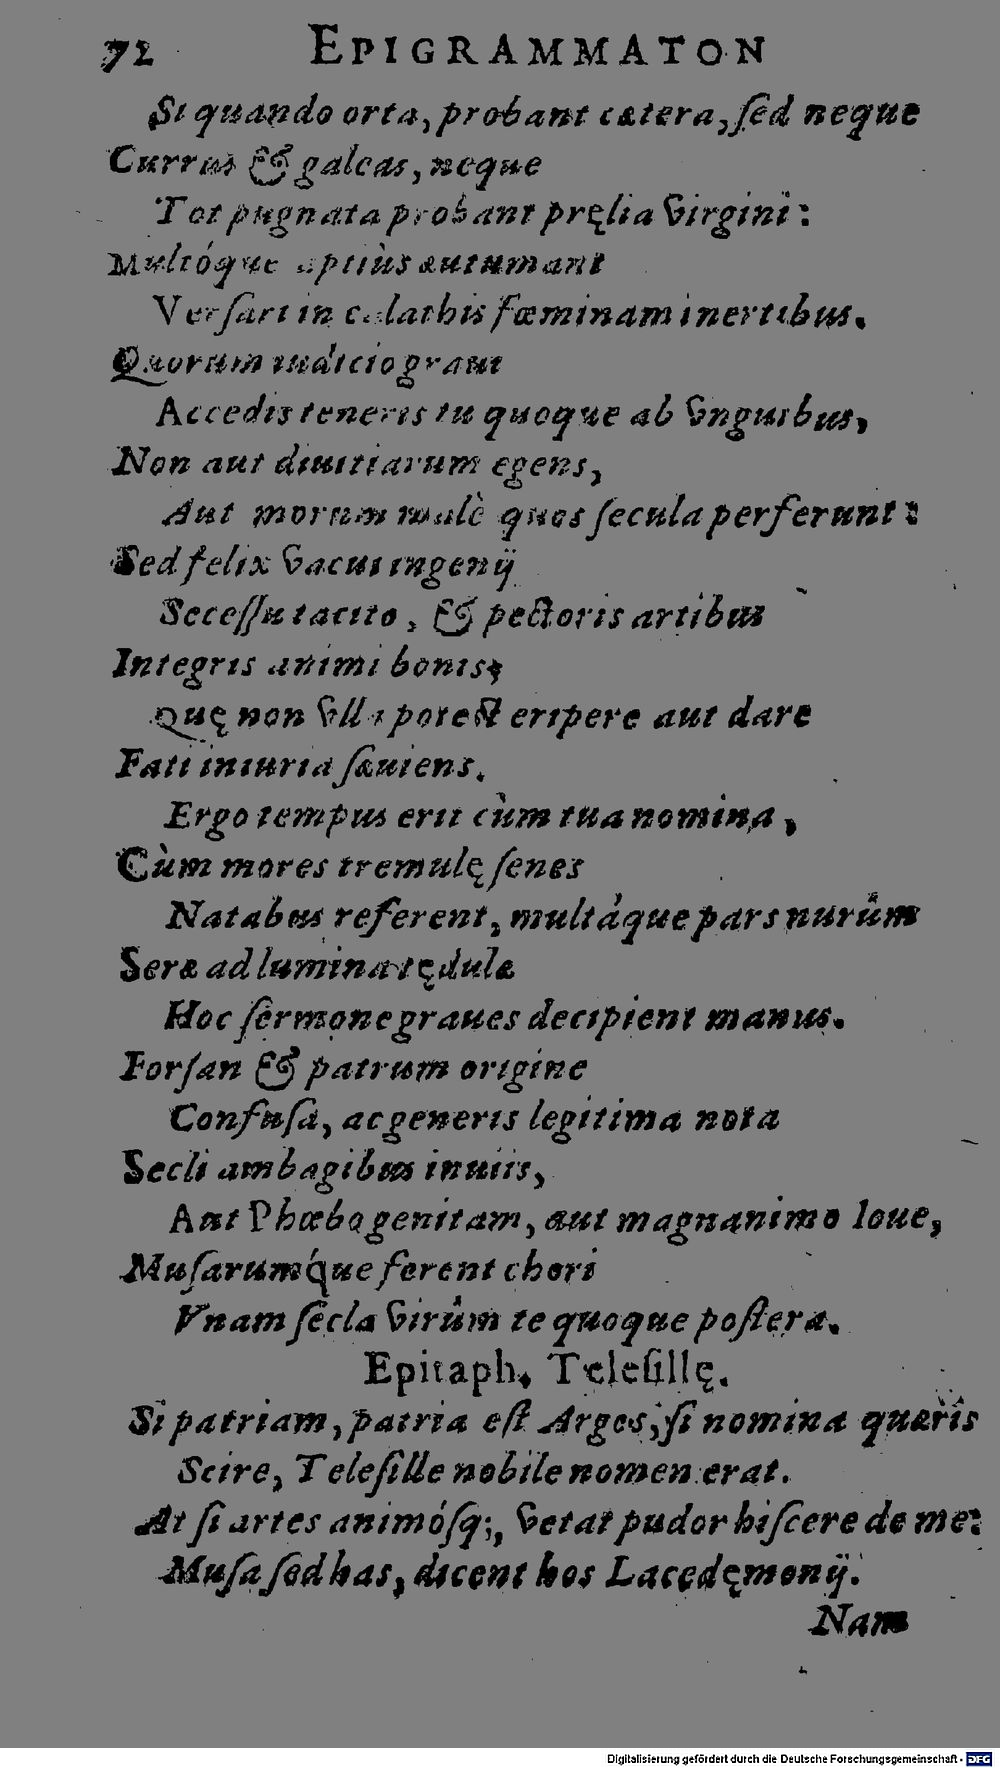 72 EPIGRAMMATON
Si quando orta, probant cætera, ſed neque
Currus & galeas, neque
Tot pugnata probant pręlia virgini:
Multóque aptiùs autumant
Verſari in calathis fœminam inertibus.
Quorum iudicio graui
Accedis teneris tu quoque ab vnguibus,
Non aut diuitiarum egens,
Aut morum malè quos ſecula perferunt:
Sed felix vacui ingenij
Seceſſu tacito, & pectoris artibus
Integris animi bonis;
Quę non vlla potest eripere aut dare
Fati iniuria ſæuiens.
Ergo tempus erit cùm tua nomina,
Cùm mores tremulę ſenes
Natabus referent, multáque pars nurûm
Seræ ad lumina tędulæ
Hoc ſermone graues decipient manus.
Forſan & patrum origine
Confuſa, ac generis legitima nota
Secli ambagibus inuiis,
Aut Phœbo genitam, aut magnanimo Ioue,
Muſarumq́ue ferent chori
Vnam ſecla virûm te quoque poſtera.
Epitaph. Teleſillę.
Si patriam, patria eſt Argos, ſi nomina quæris
Scire, Teleſille nobile nomen erat.
At ſi artes animóſq;, vetat pudor hiſcere de me:
Muſa ſed has, dicent hos Lacedęmonij.
Nam
Digitalisierung gefördert durch die Deutsche Forschungsgemeinschaft - DFG